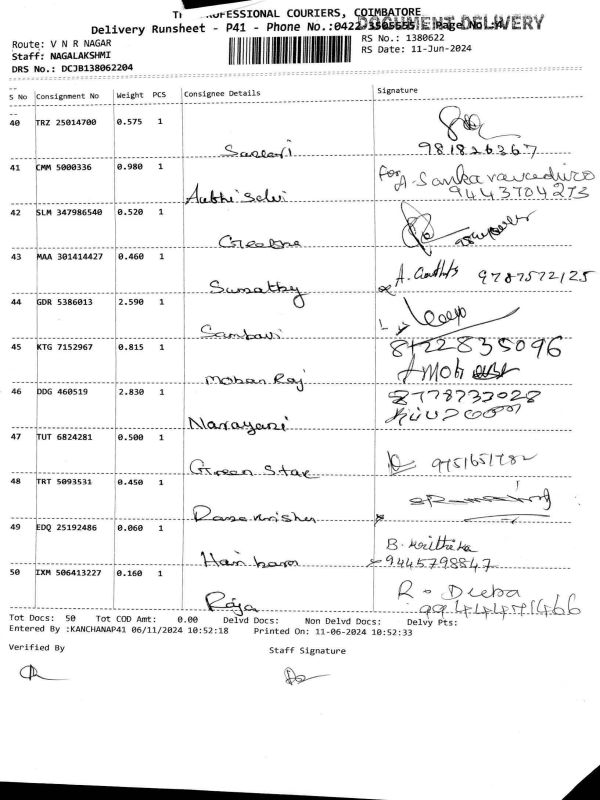 PROFESSIONAL COURIERS, COIMBATORE
DOCUMENT DELIVERY
Delivery Runsheet - P41 - Phone No.:0422-3505555, Page No.:4
Route: V N R NAGAR
RS No.: 1380622
Staff: NAGALAKSHMI
RS Date: 11-Jun-2024
DRS No.: DCJB138062204
S No Consignment No Weight PCS Consignee Details Signature
40 TRZ 25014700 0.575 1
981826367
41 CMM 5000336 0.980 1
for
Aabhi Selvi
9443704273
42 SLM 347986540 0.520 1
43 MAA 301414427 0.460 1
Sumathy
9787572125
44 GDR 5386013 2.590 1
Sambavi
45 KTG 7152967 0.815 1
8122835096
Mohan Raj
46 DDG 460519 2.830 1
8778733028
Narayani
47 TUT 6824281 0.500 1
9751651782
Green Star
48 TRT 5093531 0.450 1
49 EDQ 25192486 0.060 1
B. Krithika
9445798847
Hari haran
50 IXM 506413227 0.160 1
R. Deeba
Raja
Tot Docs: 50 Tot COD Amt: 0.00 Delvd Docs: Non Delvd Docs: Delvy Pts:
Entered By :KANCHANAP41 06/11/2024 10:52:18 Printed On: 11-06-2024 10:52:33
Verified By Staff Signature